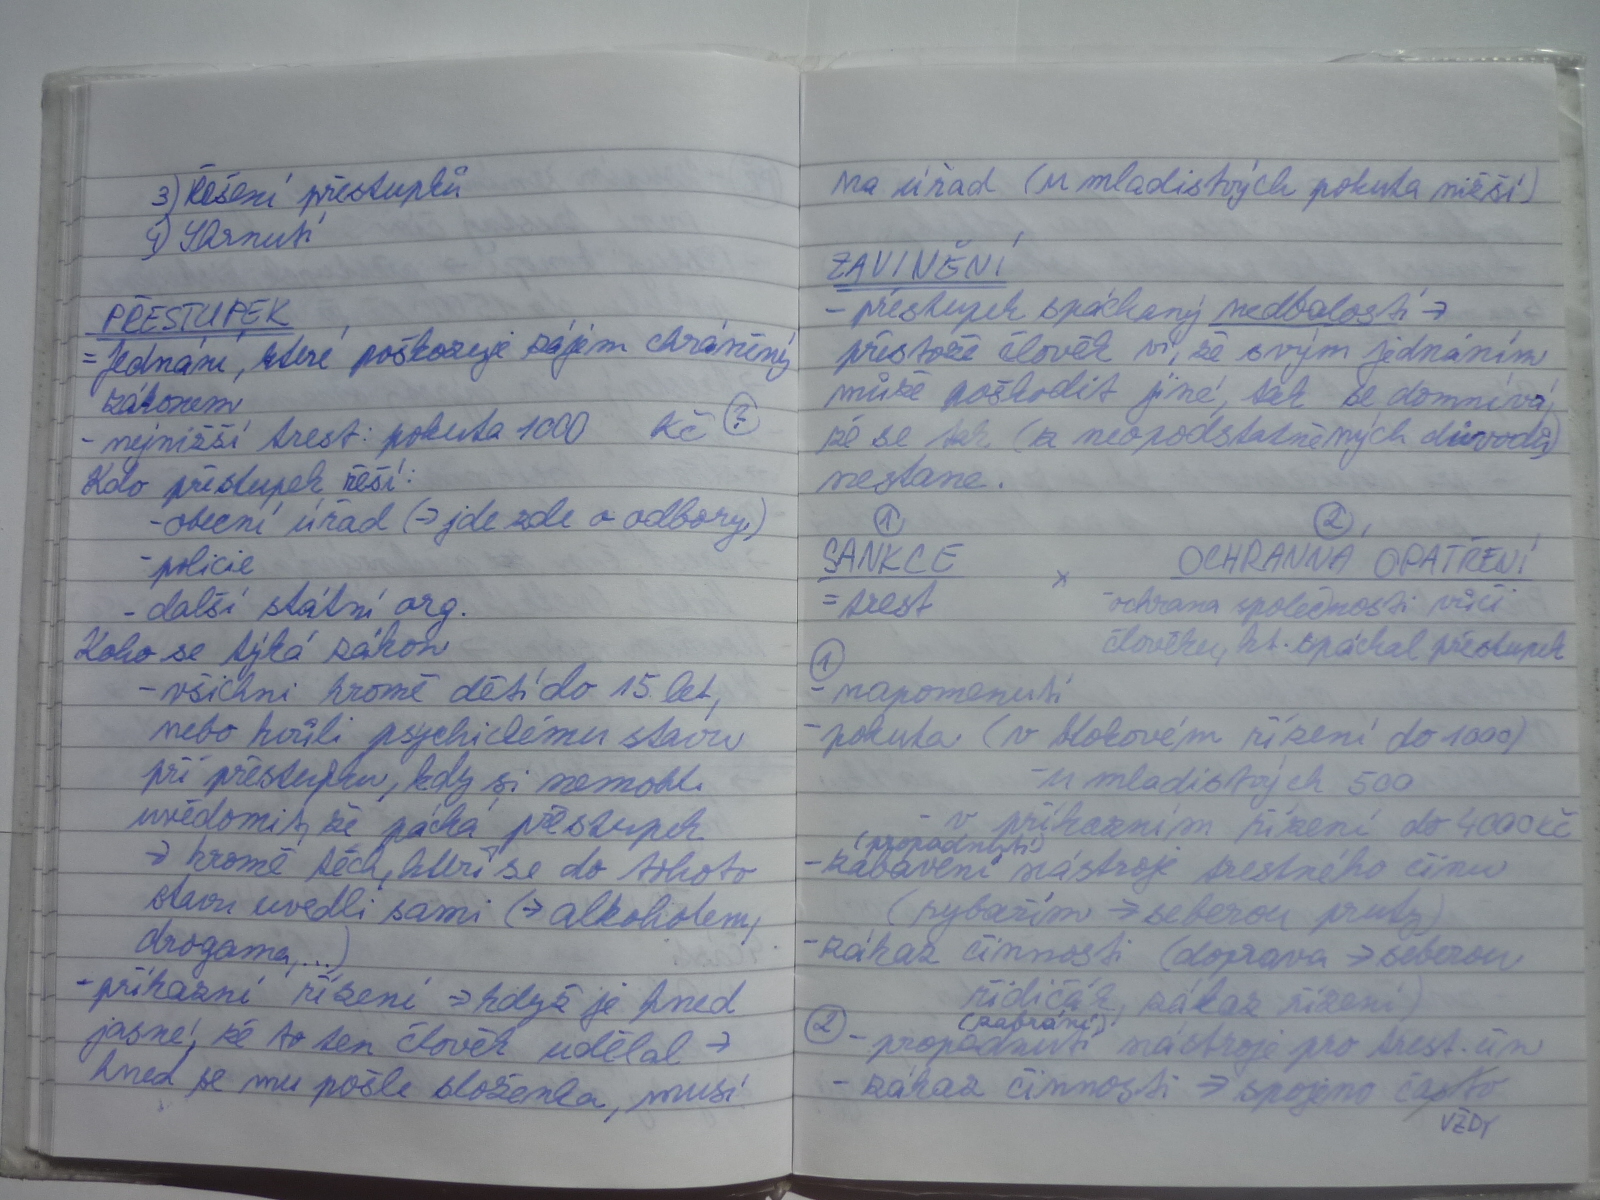 3) Řešení přestupků
4) Shrnutí
PŘESTUPEK
= Jednání, které poškozuje zájem chráněný
zákonem
- nejnižší trest: pokuta 1000 Kč ?
Kdo přestupek řeší:
- obecní úřad (→ jde zde o odbory)
- policie
- další státní org.
Koho se týká zákon
- všichni kromě dětí do 15 let,
nebo kvůli psychickému stavu
při přestupku, kdy si nemohl
uvědomit, že páchá přestupek
→ kromě těch, kteří se do tohoto
stavu uvedli sami (→ alkoholem,
drogama,...)
- příkazní řízení → když je hned
jasné, že to ten člověk udělal →
hned se mu pošle složenka, musí
na úřad (u mladistvých pokuta nižší)
ZAVINĚNÍ
- přestupek spáchaný nedbalostí →
přestože člověk ví, že svým jednáním
může poškodit jiné, tak se domnívá,
že se tak (z neopodstatněných důvodů)
nestane.
1 2
SANKCE × OCHRANNÁ OPATŘENÍ
= trest - ochrana společnosti vůči
člověku, kt. spáchal přestupek
1
- napomenutí
- pokuta (v blokovém řízení do 1000)
- u mladistvých 500
- v příkazním řízení do 4000 Kč
(propadnutí)
- zabavení nástroje trestného činu
(rybařím → seberou pruty)
- zákaz činnosti (doprava → seberou
řidičák, zákaz řízení)
(zabrání)
2 - propadnutí nástroje pro trest. čin
- zákaz činnosti → spojeno často
VŽDY